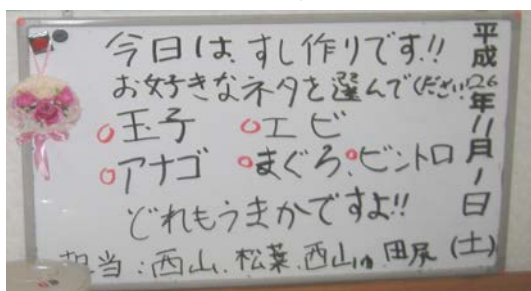 今日は、すし作りです!!
お好きなネタを選んでください!!
玉子 エビ
アナゴ まぐろ、ビントロ
どれもうまかですよ!!
担当:西山、松葉、西山
平成26年11月1日(土)